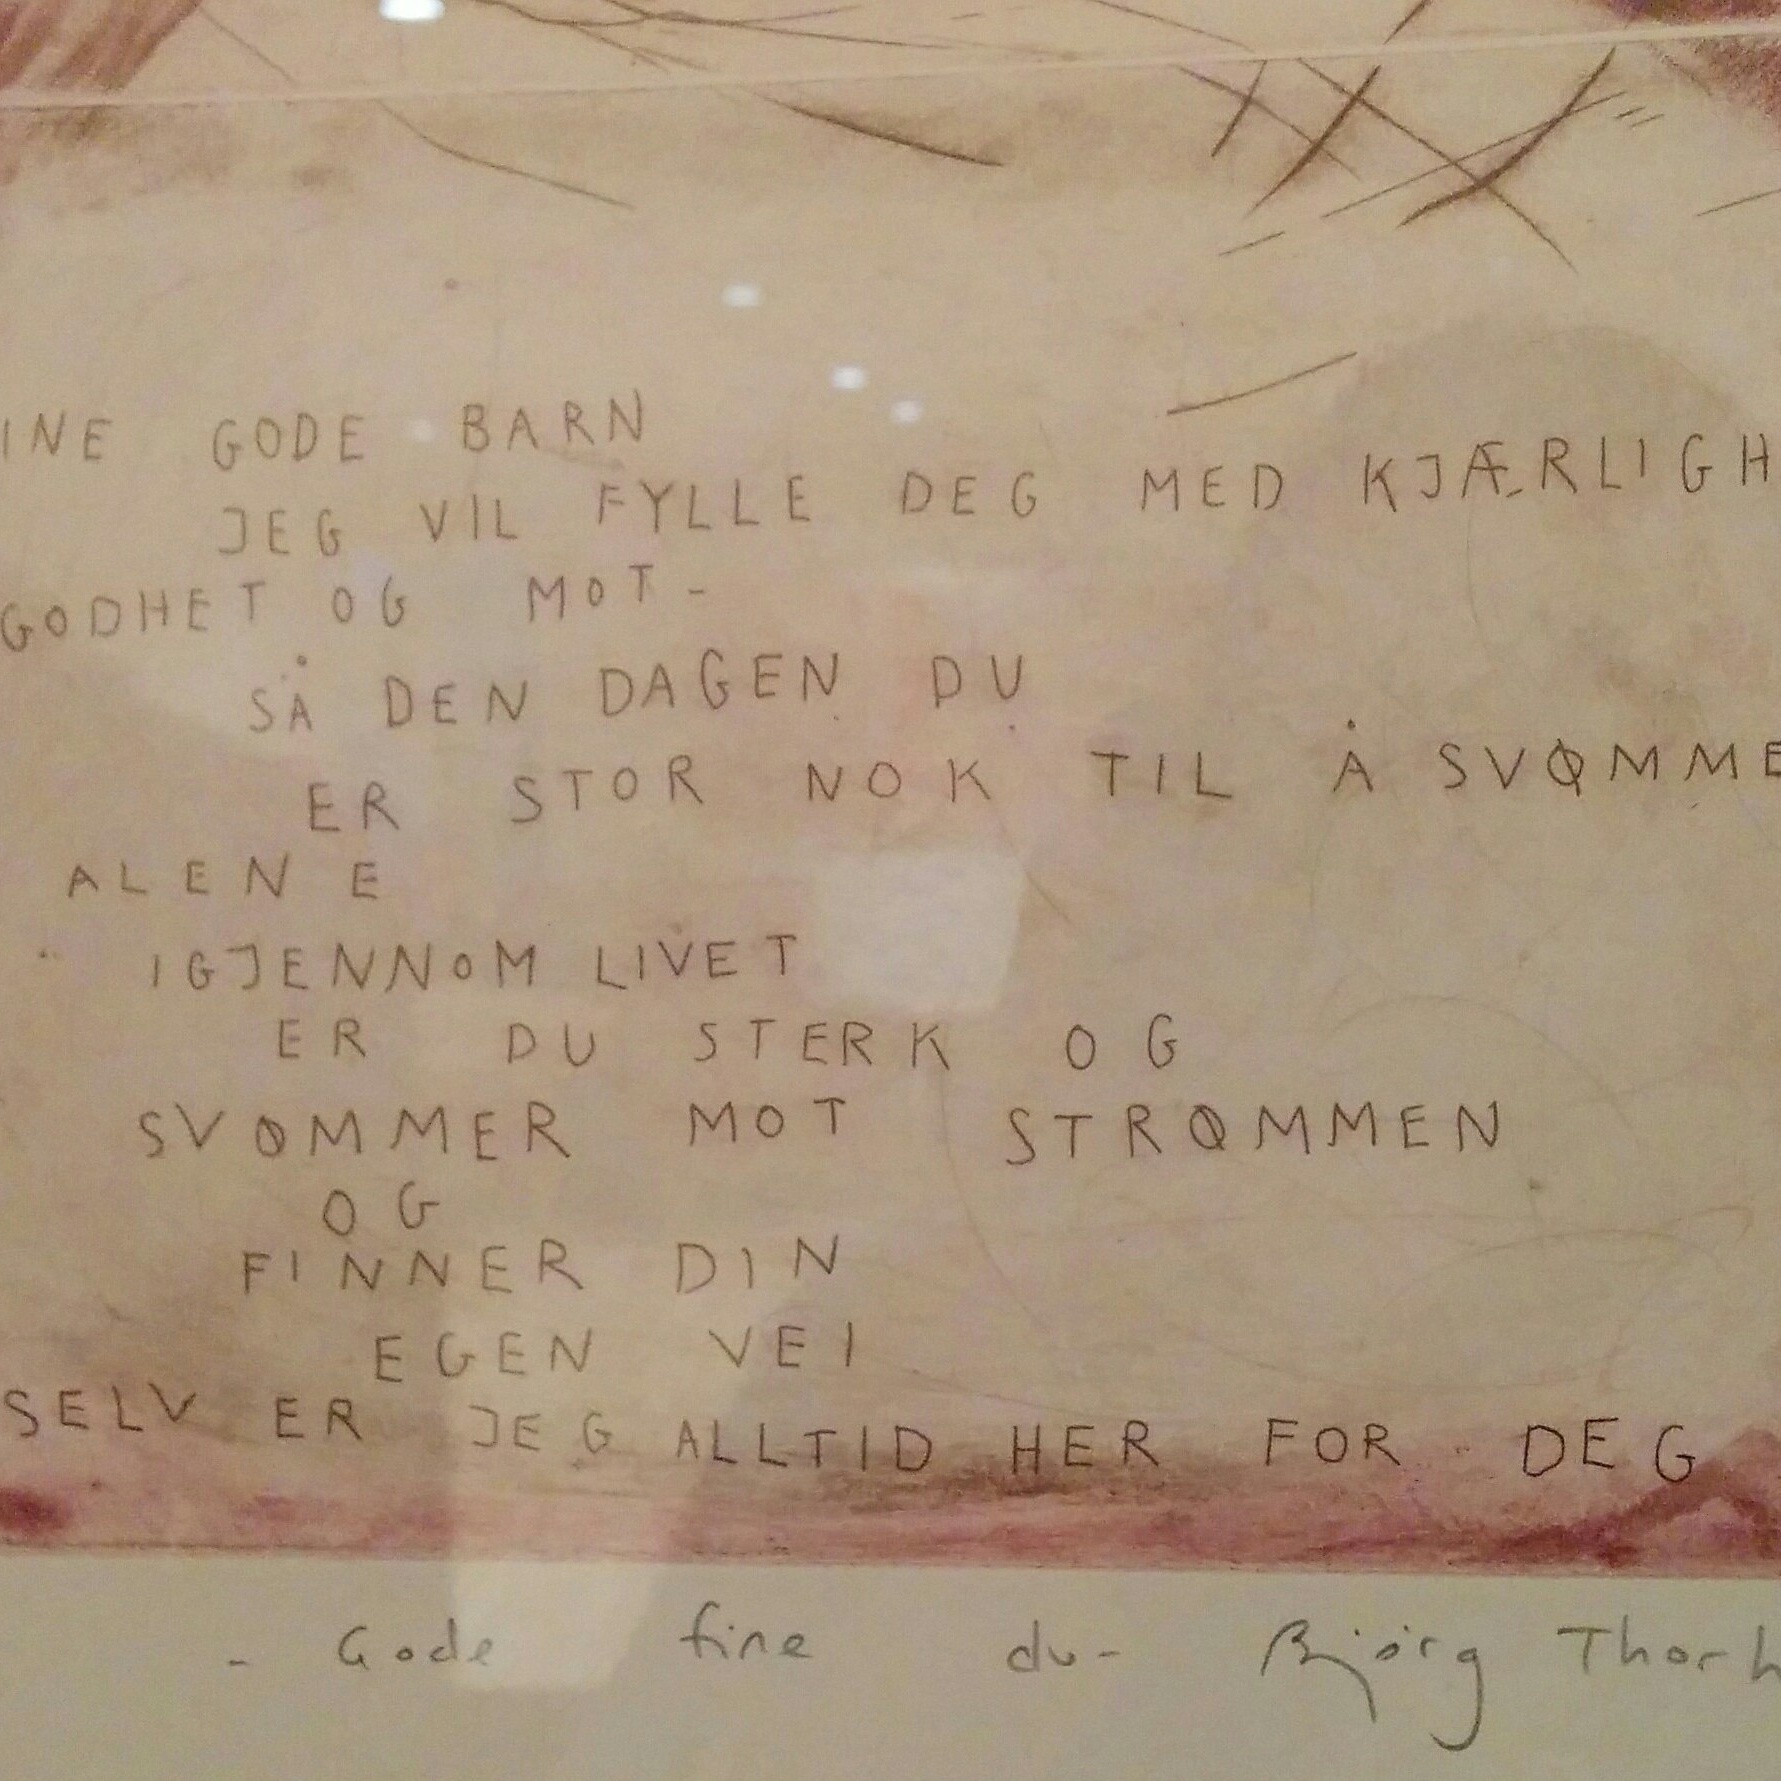 INE GODE BARN
JEG VIL FYLLE DEG MED KJÆRLIGH
GODHET OG MOT-
SÅ DEN DAGEN DU
ER STOR NOK TIL Å SVØMME
ALENE
IGJENNOM LIVET
ER DU STERK OG
SVØMMER MOT STRØMMEN
OG
FINNER DIN
EGEN VEI
SELV ER JEG ALLTID HER FOR DEG
- Gode fine du- Bjørg Thorh